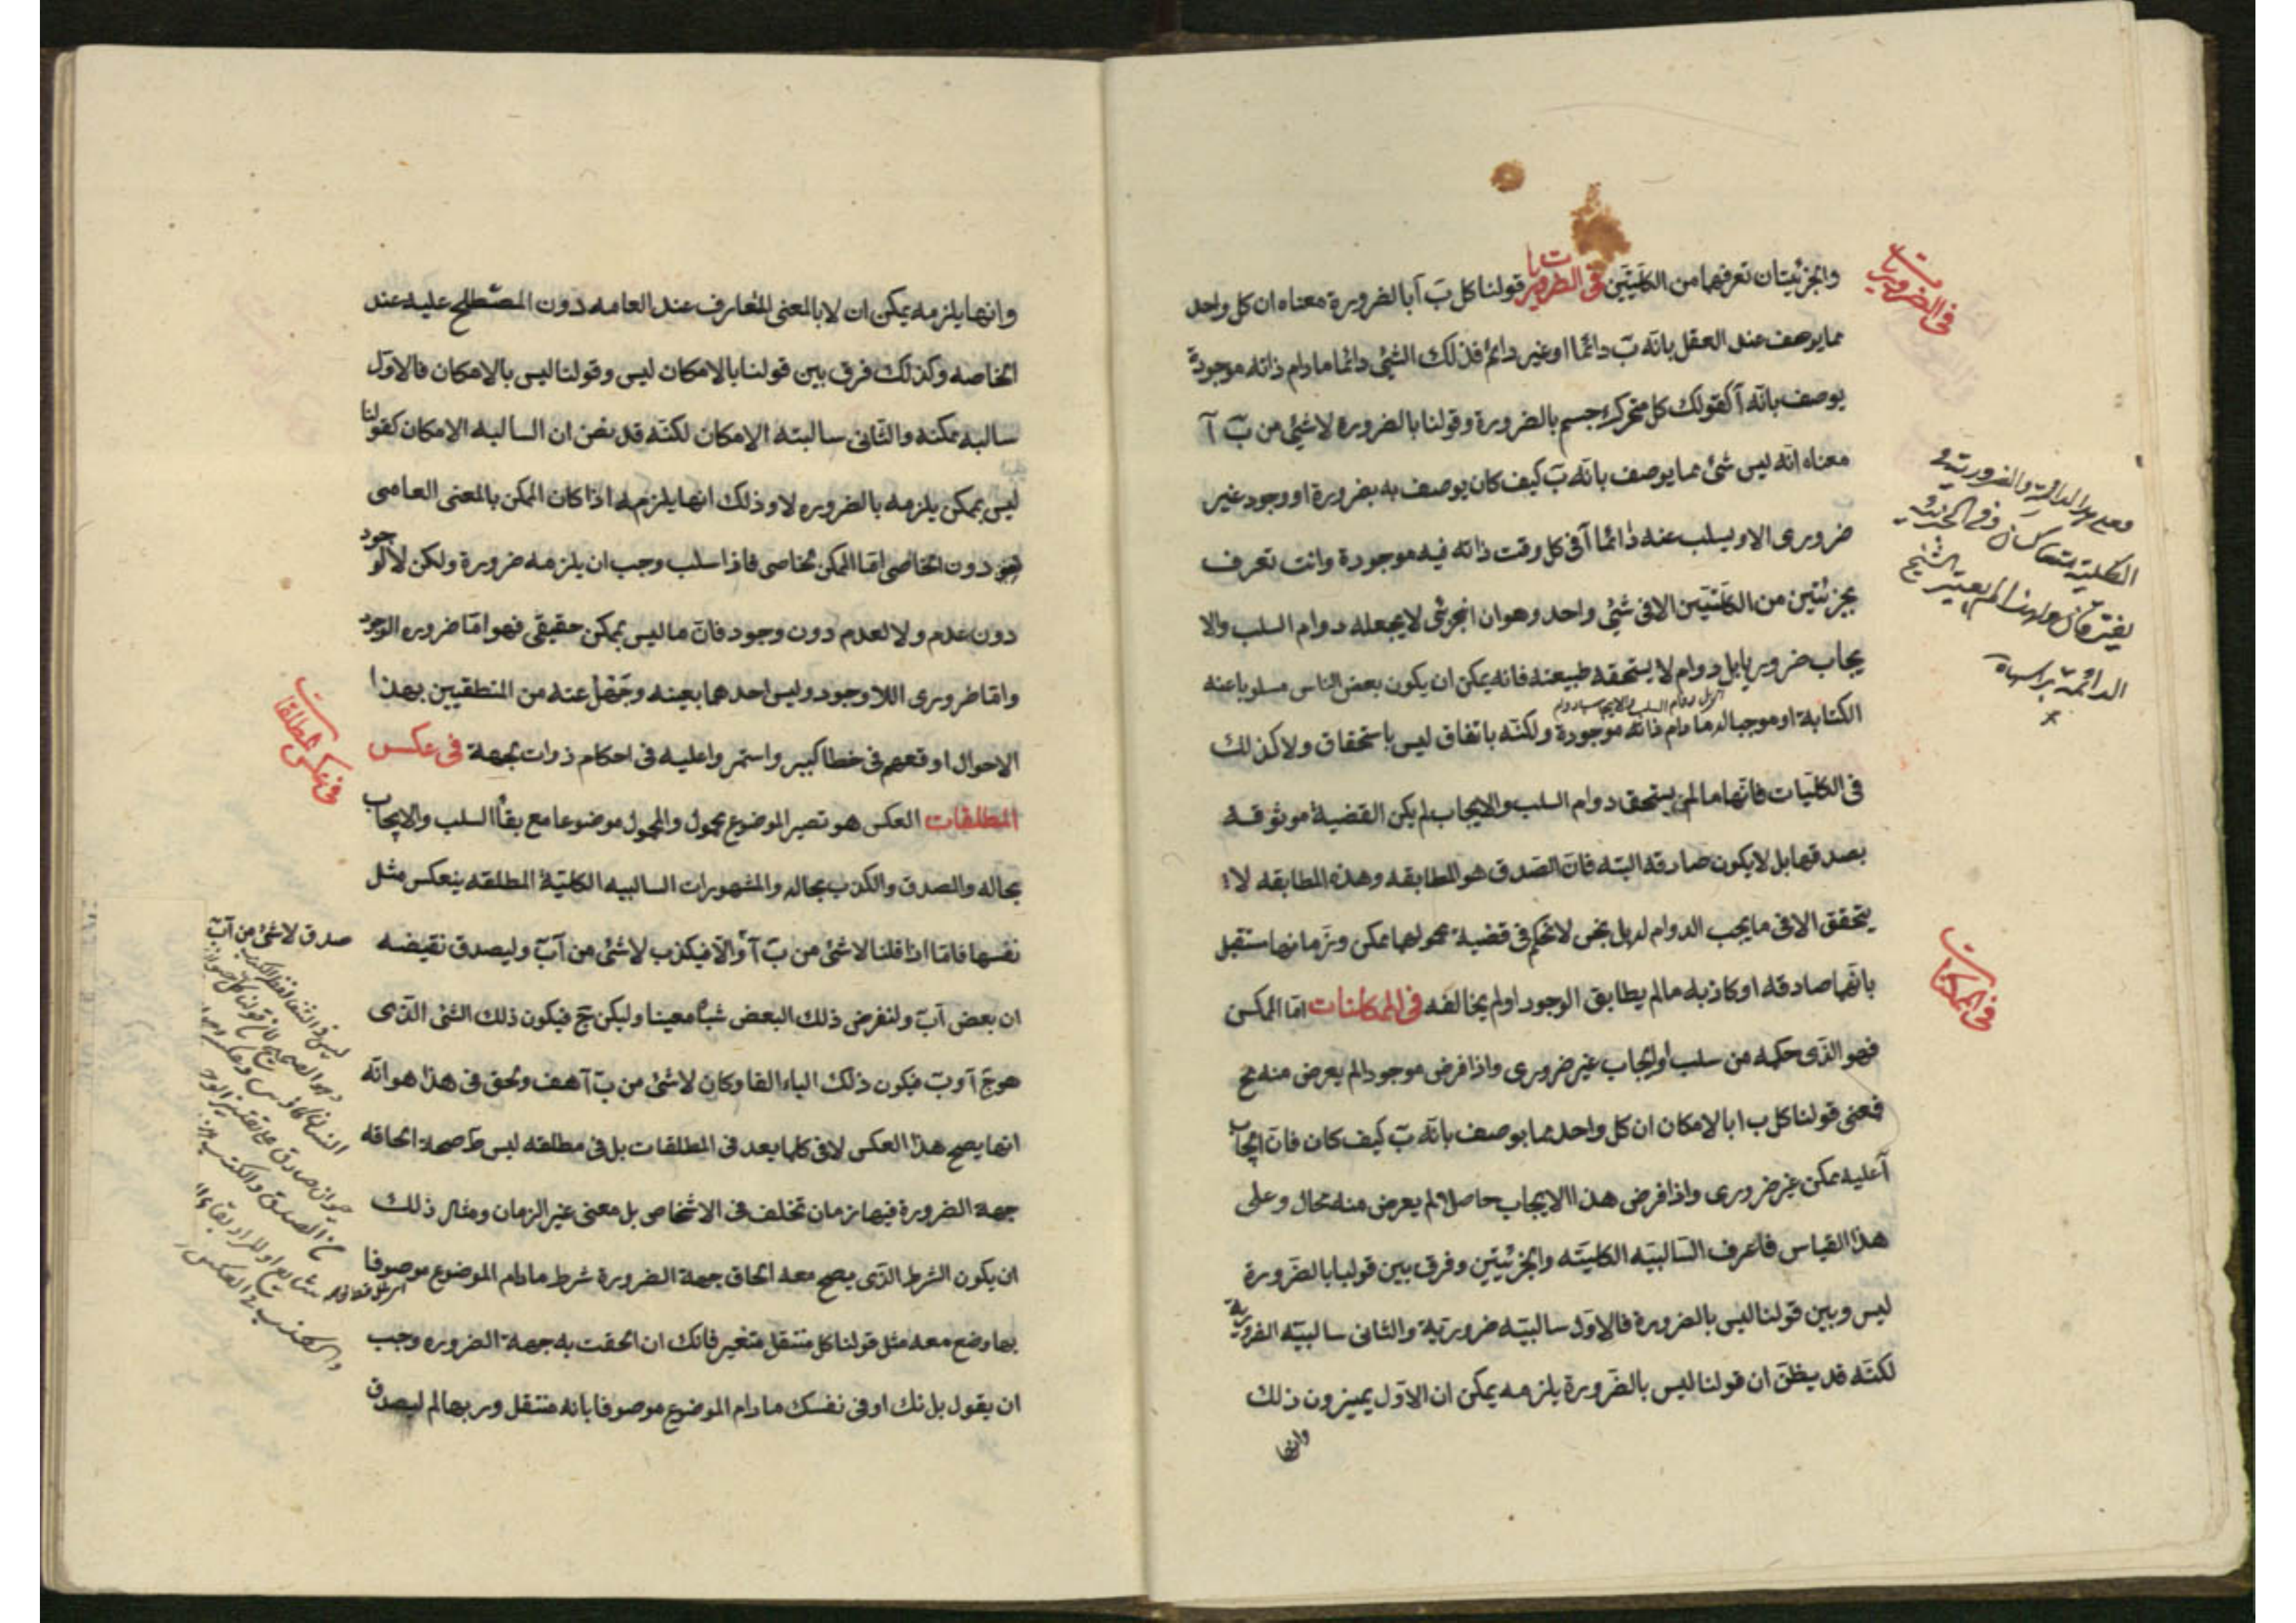 وانجزئيتان تعرفهما من الكليتين في الضروريات قولنا كل بَ آ بالضرورة معناه ان كل واحد
مما يوصف عند العقل بانه بَ دائما او غير دائم فذلك الشئ دائما مادام ذاته موجودة
يوصف بانه آ كقولك كل متحرك جسم بالضرورة وقولنا بالضرورة لا شئ من بَ آ
معناه انه ليس شئ مما يوصف بانه بَ كيف كان يوصف به بضرورة او وجود غير
ضروري الا ويسلب عنه دائما آ في كل وقت ذاته فيه موجودة وانت تعرف
بجزئيتين من الكليتين الا في شئ واحد وهو ان الجزئي لا يجعله دوام السلب والا
يجاب ضروريا بل دوام لا يستحقه طبيعته فانه يمكن ان يكون بعض الناس مسلوبا عنه
الكتابة او موجبا له مادام ذاته موجودة ولكنه باتفاق ليس باستحقاق ولا كذلك
في الكليات فانها ما لم يستحق دوام السلب والايجاب لم يكن القضية موثوقة
بصدقها بل لا يكون صادقه البته فان الصدق هو المطابقه وهذه المطابقه لا
يتحقق الا في ما يجب الدوام له بل نحن لا نحكم في قضية محمولها ممكن وزمانها مستقبل
بانها صادقه او كاذبه مالم يطابق الوجود او لم يخالفه في الممكنات اما الممكن
فهو الذي حكمه من سلب او ايجاب غير ضروري واذا فرض موجودا لم يعرض منه مح
فمعنى قولنا كل ب ا بالامكان ان كل واحد مما يوصف بانه بَ كيف كان فان ايجاب
آ عليه ممكن غير ضروري واذا فرض هذا الايجاب حاصلا لم يعرض منه محال وعلى
هذا القياس فاعرف السالبيه الكليته وانجزئيتين وفرق بين قولنا بالضرورة
ليس وبين قولنا ليس بالضرورة فالاول سالبيته ضرورتية والثاني سالبيته الضرورية
لكنه قد يظن ان قولنا ليس بالضرورة يلزمه يمكن ان الاول يميزون ذلك
وانها
في الضروريات
الكليتية يتعاكسان
الدائمة براسها
في الممكنات
وانها يلزمه يمكن ان لا بالمعنى المتعارف عند العامه دون المصطلح عليه عند
الخاصه وكذلك فرق بين قولنا بالامكان ليس وقولنا ليس بالامكان فالاول
سالبه ممكنه والثاني سالبته الامكان لكنه قد يظن ان السالبه الامكان كقولنا
ليس بممكن يلزمه بالضروره لا وذلك انها يلزمه اذا كان الممكن بالمعنى العامي
هو دون الخاصي اما الممكن الخاصي فاذا سلب وجب ان يلزمه ضرورة ولكن لا لوجود
دون عدم ولا لعدم دون وجود فان ما ليس بممكن حقيقي فهو اما ضروره الوجود
واما ضروري اللا وجود وليس احدهما بعينه وجهل عنه من المنطقيين بهذا
الاحوال اوقعهم في خطا كبير واستمروا عليه في احكام ذوات الجهة في عكس
المطلقات العكس هو تصير الموضوع محمول والمحمول موضوعا مع بقاء السلب والايجاب
بحاله والصدق والكذب بحاله والمشهورات السالبيه الكلتية المطلقه ينعكس مثل
نفسها فاما اذا قلنا لا شئ من بَ آ والا فيكذب لا شئ من آ بَ وليصدق نقيضه
ان بعض آ بَ ولنفرض ذلك البعض شيأ معينا وليكن جَ فيكون ذلك الشئ الذي
هو جَ آ و بَ فيكون ذلك الباء الفا وكان لا شئ من بَ آ هف وتحق في هذا هو انه
انما يصح هذا العكس لا في كلما يعد في المطلقات بل في مطلقه ليس ط صحة الحاقه
جهة الضرورة فيها زمان تختلف في الاشخاص بل معنى غير الزمان ومثال ذلك
ان يكون الشرط الذي يصح معه الحاق جهة الضرورة شرط مادام الموضوع موصوفا
بما وضع معه مثل قولنا كل منتقل متغير فانك ان الحقت به جهة الضروره وجب
ان يقول بلنك او في نفسك مادام الموضوع موصوفا بانه منتقل وربما لم ليصدق
في عكس المطلقات
صدق لا شئ من آ بَ